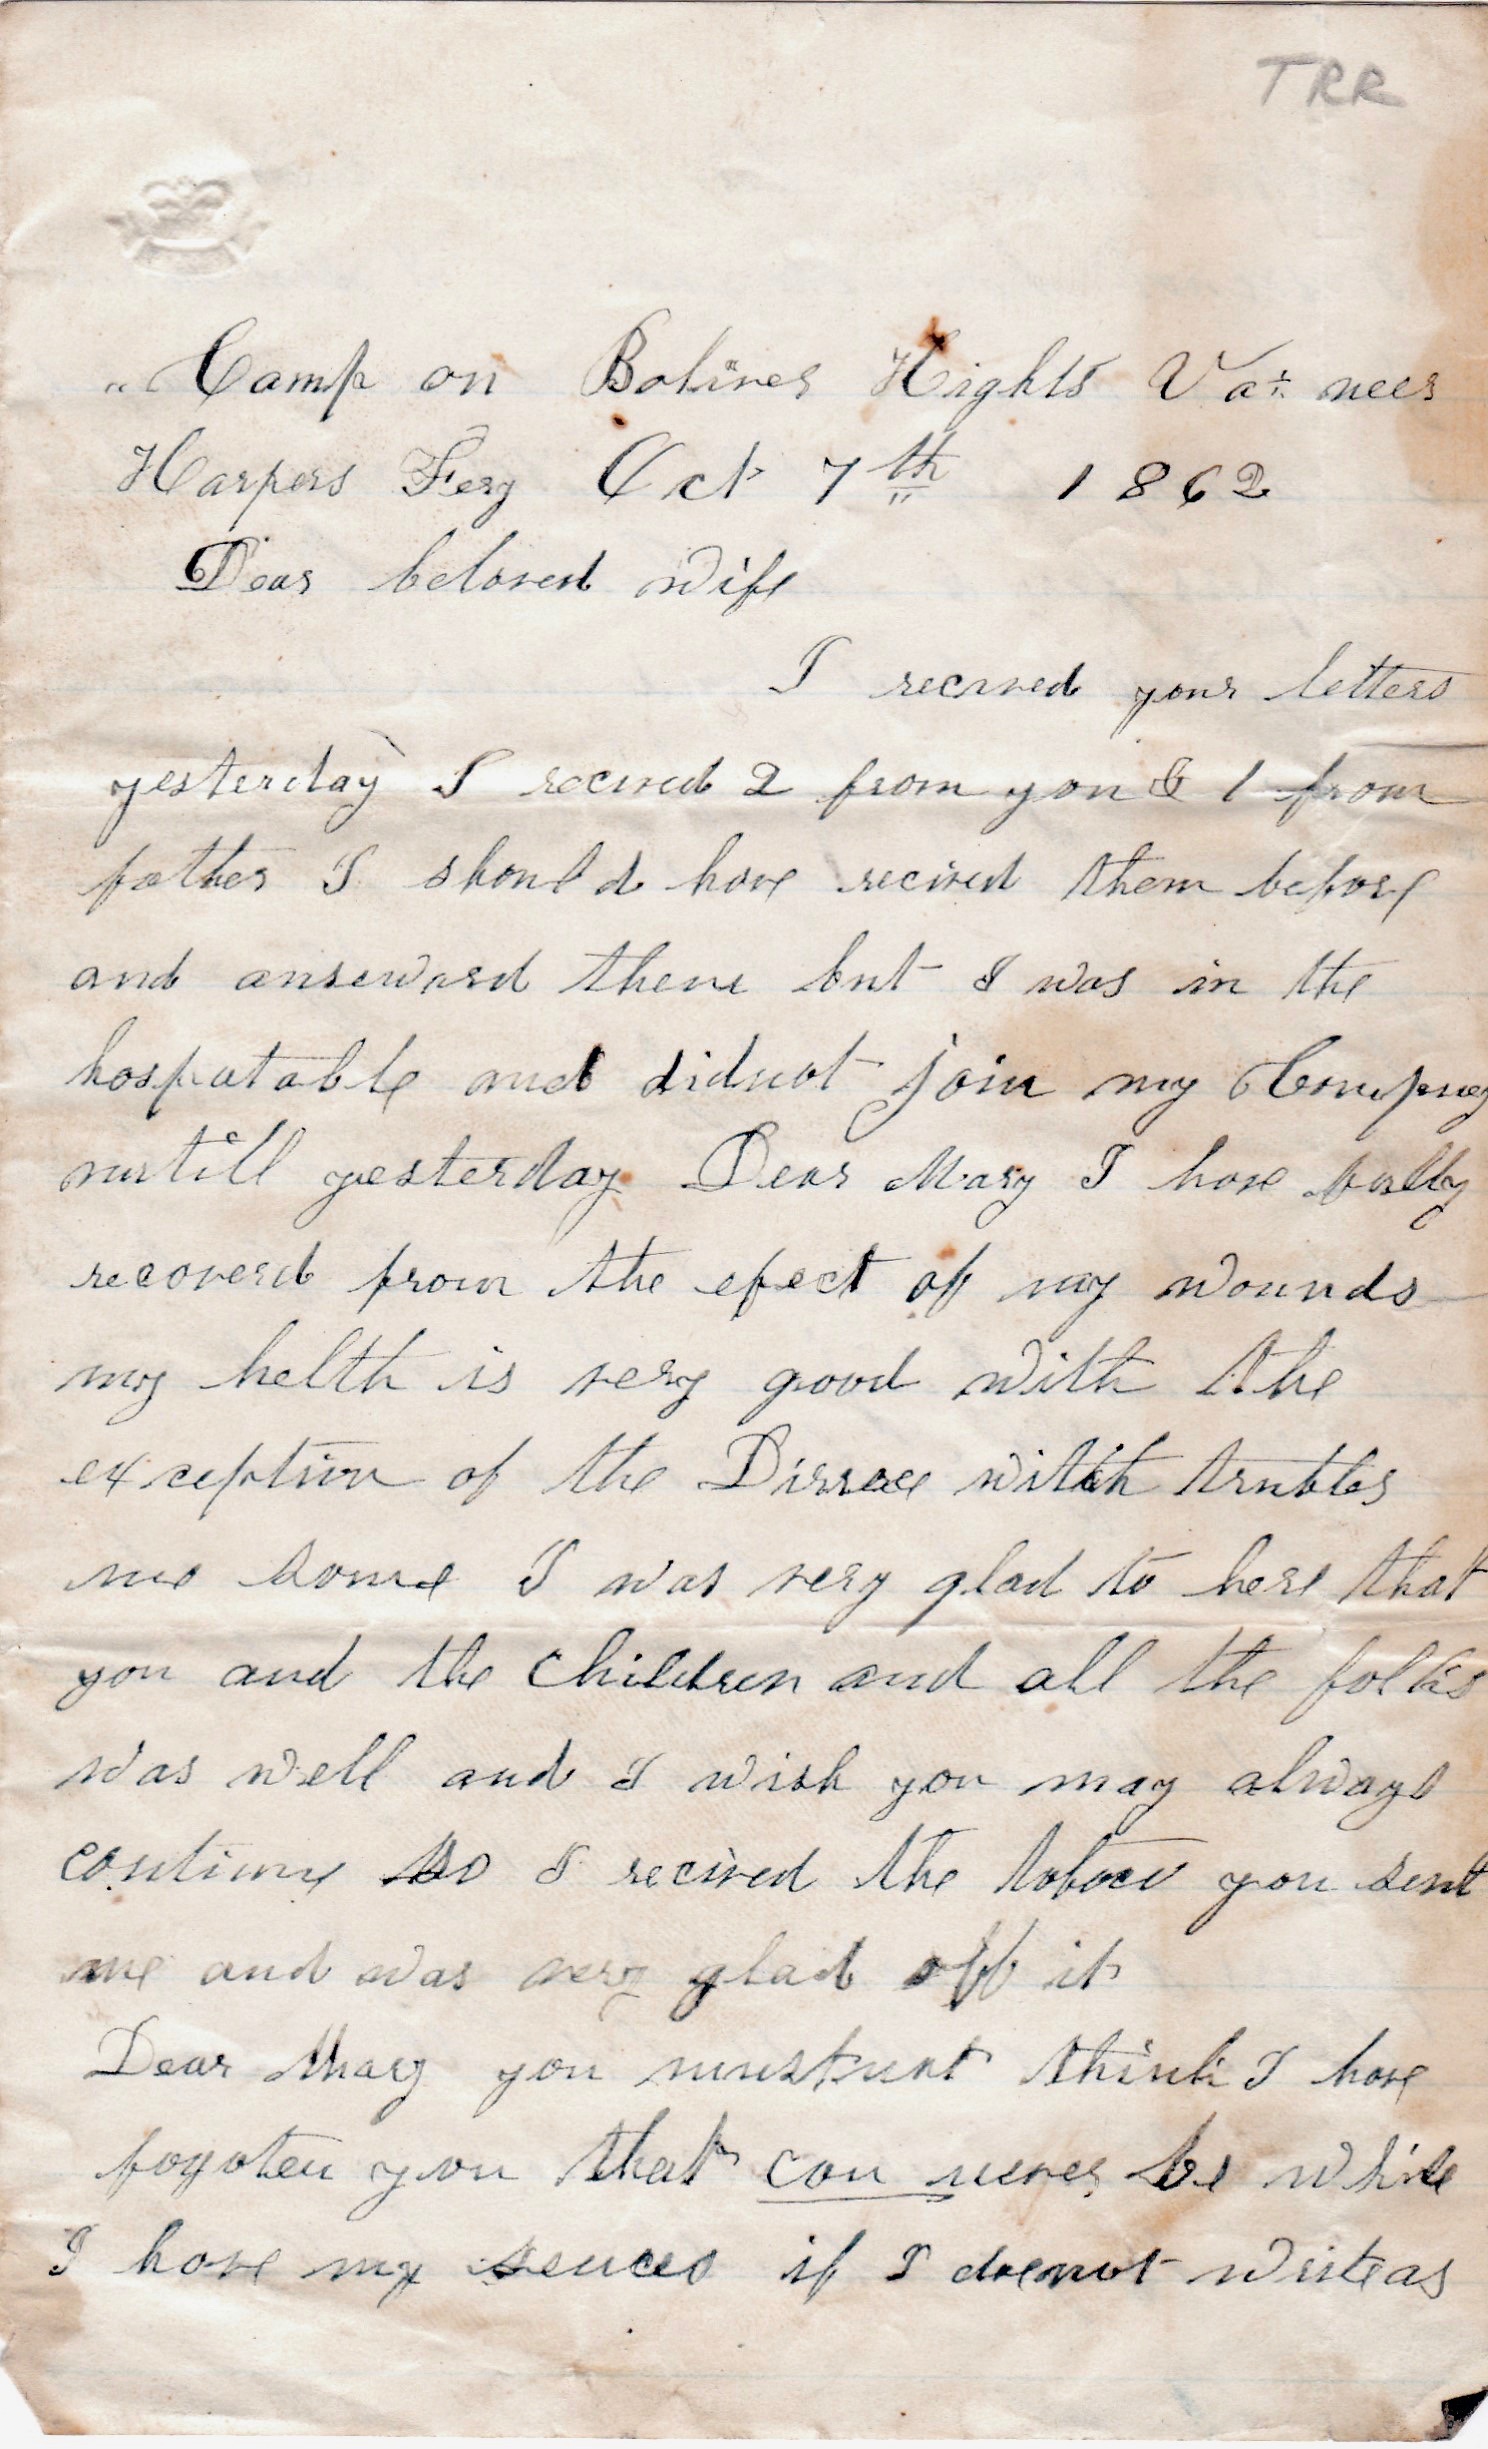 TRR
" Camp on Bolives Hights Va. nees
Harpers Fery Oct 7th 1862
Dear beloved wife
I recived your letters
yesterday I recived 2 from you & 1 from
father I should have recived them before
and anseward them but I was in the
hospatable and didnot join my Compney
untill yesterday Dear Mary I have fully
recoverd from the efect of my wounds
my helth is very good with the
exception of the witch trubles
me some I was very glad to here that
you and the Children and all the folks
was well and I wish you may always
continue so I recived the tobaco you sent
me and was very glad off it
Dear Mary you mustnot think I have
fogoten you that can never be while
I have my sences if I doenot write as